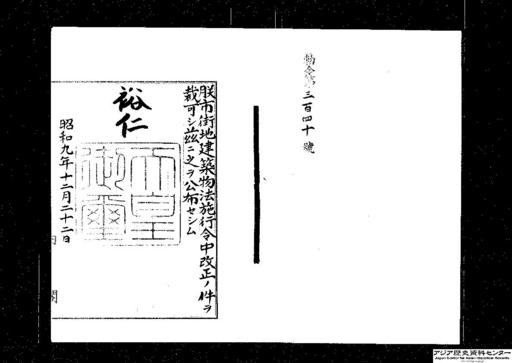 勅令第三百四十號
朕市街地建築物法施行令中改正ノ件ヲ
裁可シ茲ニ之ヲ公布セシム
裕仁
天皇
御璽
昭和九年十二月二十二日
内閣
アジア歴史資料センター
Japan Center for Asian Historical Records